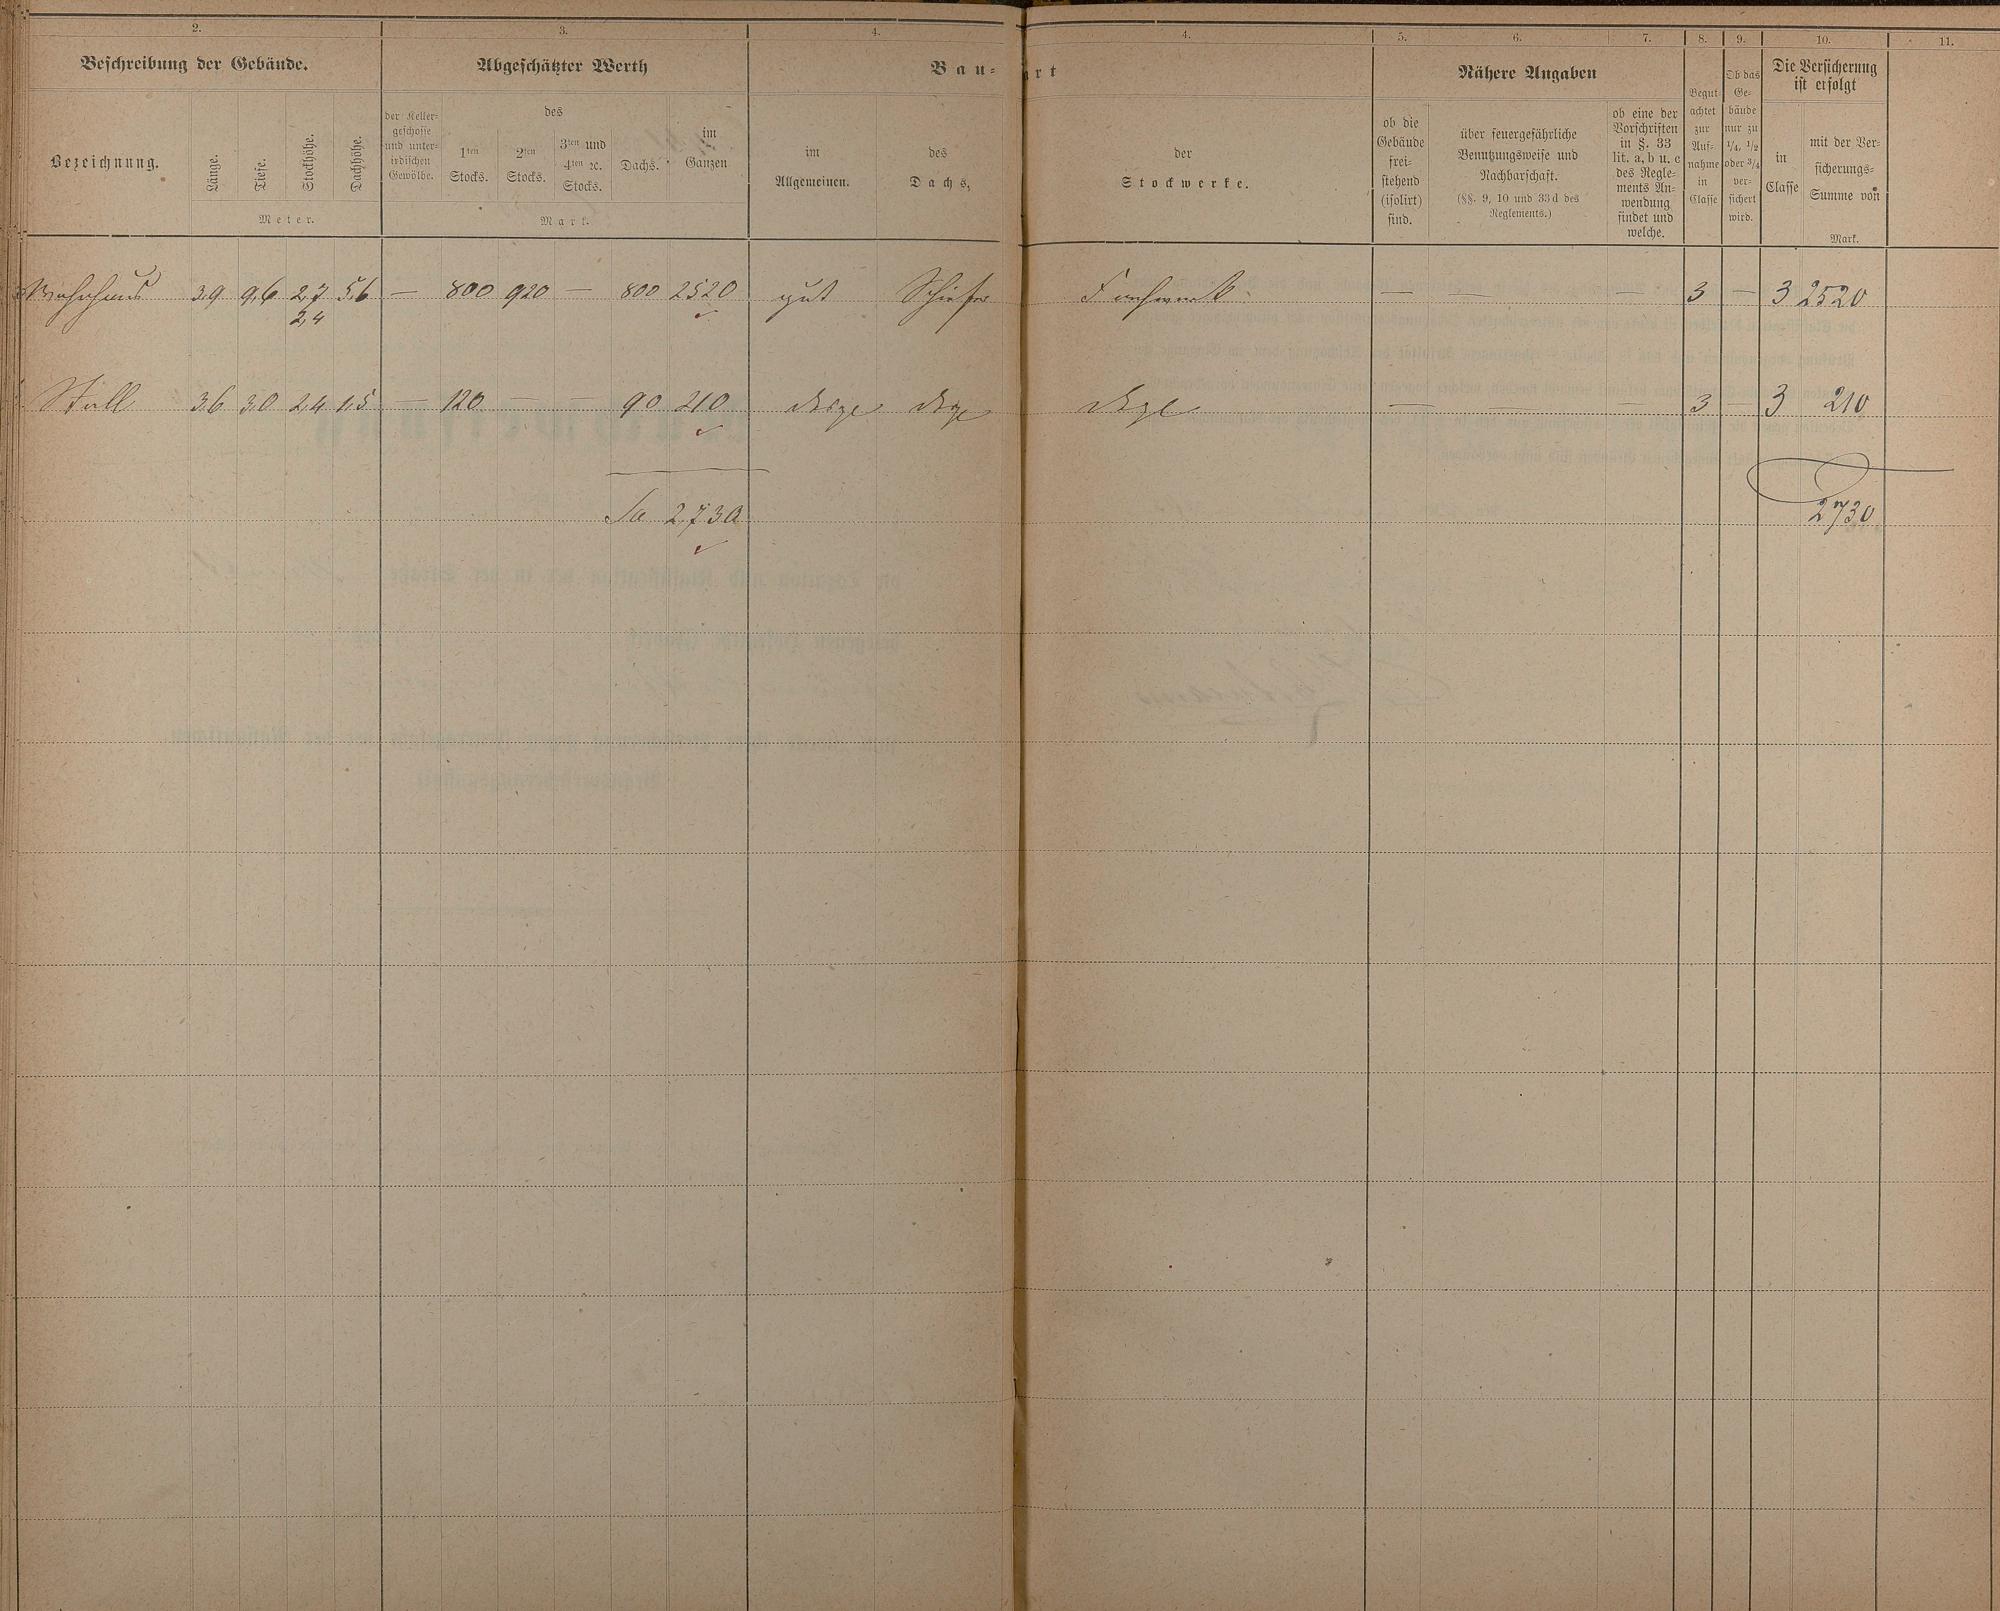 2. 3. 4. 4. 5. 6. 7. 8. 9. 10. 11.
Beschreibung der Gebäude. Abgeschätzter Werth Bau- art Nähere Angaben Die Versicherung ist erfolgt
Bezeichnung.
Länge.
Tiefe.
Stockhöhe.
Dachhöhe.
Meter.
der Keller-
geschosse
und unter-
irdischen
Gewölbe.
des
1ten
Stocks.
2ten
Stocks.
3ten und
4ten ꝛc.
Stocks.
Dachs.
im
Ganzen
Mark.
im
Allgemeinen.
des
Dachs,
der
Stockwerke.
ob die
Gebäude
frei-
stehend
(isolirt)
sind.
über feuergefährliche
Benutzungsweise und
Nachbarschaft.
(§§. 9, 10 und 33d des
Reglements.)
ob eine der
Vorschriften
in §. 33
lit. a, b u. c
des Regle-
ments An-
wendung
findet und
welche.
Begut-
achtet
zur
Auf-
nahme
in
Classe
Ob das
Ge-
bäude
nur zu
1/4, 1/2
oder 3/4
ver-
sichert
wird.
in
Classe
mit der Ver-
sicherungs-
Summe von
Mark.
Wohnhaus 3,9 9,6 2,7 5,6 — 800 920 — 800 2520 gut Schiefer Fachwerk — — — 3 — 3 2520
2,4
Stall 3,6 3,0 2,4 1,5 — 120 — — 90 210 desgl desgl desgl — — — 3 — 3 210
Sa 2,730 2730